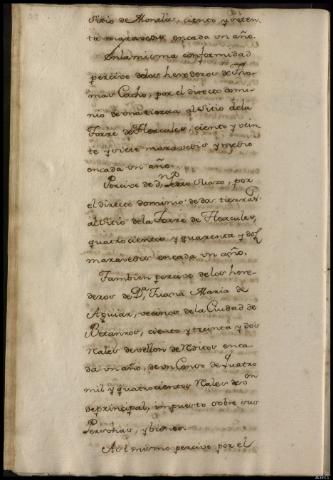 Sitio de Monelos, ciento y seten-
ta maravedis encada un año.
Enla misma conformidad
percive delos herederos de Tho-
mas Cacho, por el directo domi-
nio de una tierra al sitio dela
Torre de Hercules, ciento y vein-
te y siete maravedis y medio
encada un año.
Percive de Dn Pedro, por
el directo dominio de dos tierras
al sitio dela Torre de Hercules,
quatrocientos y quarenta y dos
maravedis encada un año.
Tambien percive de los here-
deros de Da Juana Maria de
Aguiar, vecinos de la Ciudad de
Betanzos, ciento y treinta y dos
Reales de vellon de reditos enca-
da un año, de un Censo de quatro
mil y quatrocientos Reales de von
de principal, impuesto sobre sus
Personas, y vienes.
Asi mismo percive por el